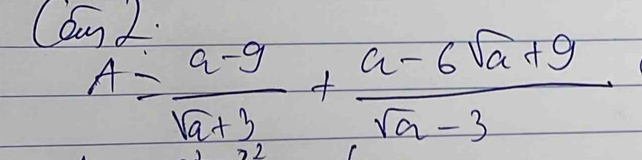 Câu 2:
A = \frac{a-9}{\sqrt{a}+3} + \frac{a-6\sqrt{a}+9}{\sqrt{a}-3}